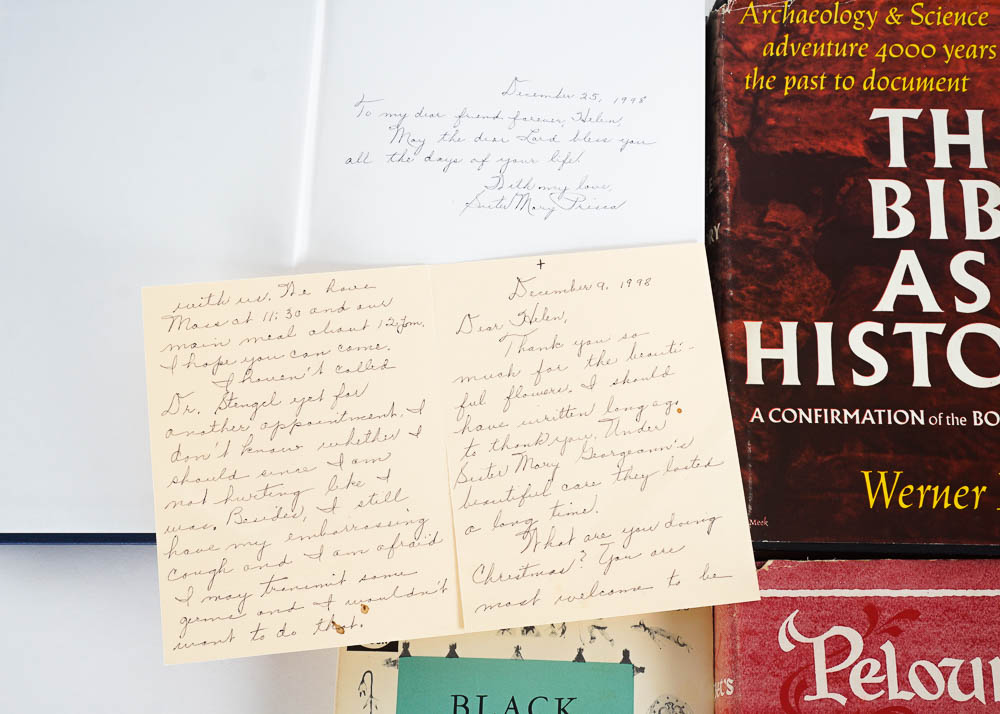 December 25, 1998
To my dear friend forever, Helen,
May the dear Lord bless you
all the days of your life!
With my love,
Sister Mary Prisca
December 9, 1998
Dear Helen,
Thank you so
much for the beauti-
ful flowers. I should
have written long ago
to thank you. Under
Sister Mary Georgeann's
beautiful care they lasted
a long time.
What are you doing
Christmas? You are
most welcome to be
with us. We have
Mass at 11:30 and our
main meal about 12:
I hope you can come.
I haven't called
Dr. Stengel yet for
another appointment. I
don't know whether I
should since I am
not hurting like I
was. Besides, I still
have my embarrassing
cough and I am afraid
I may transmit some
germs and I wouldn't
want to do that!
Archaeology & Science
adventure 4000 years
the past to document
TH
BIB
AS
HISTO
A CONFIRMATION of the BO
Werner
Meek
Pelou
BLACK